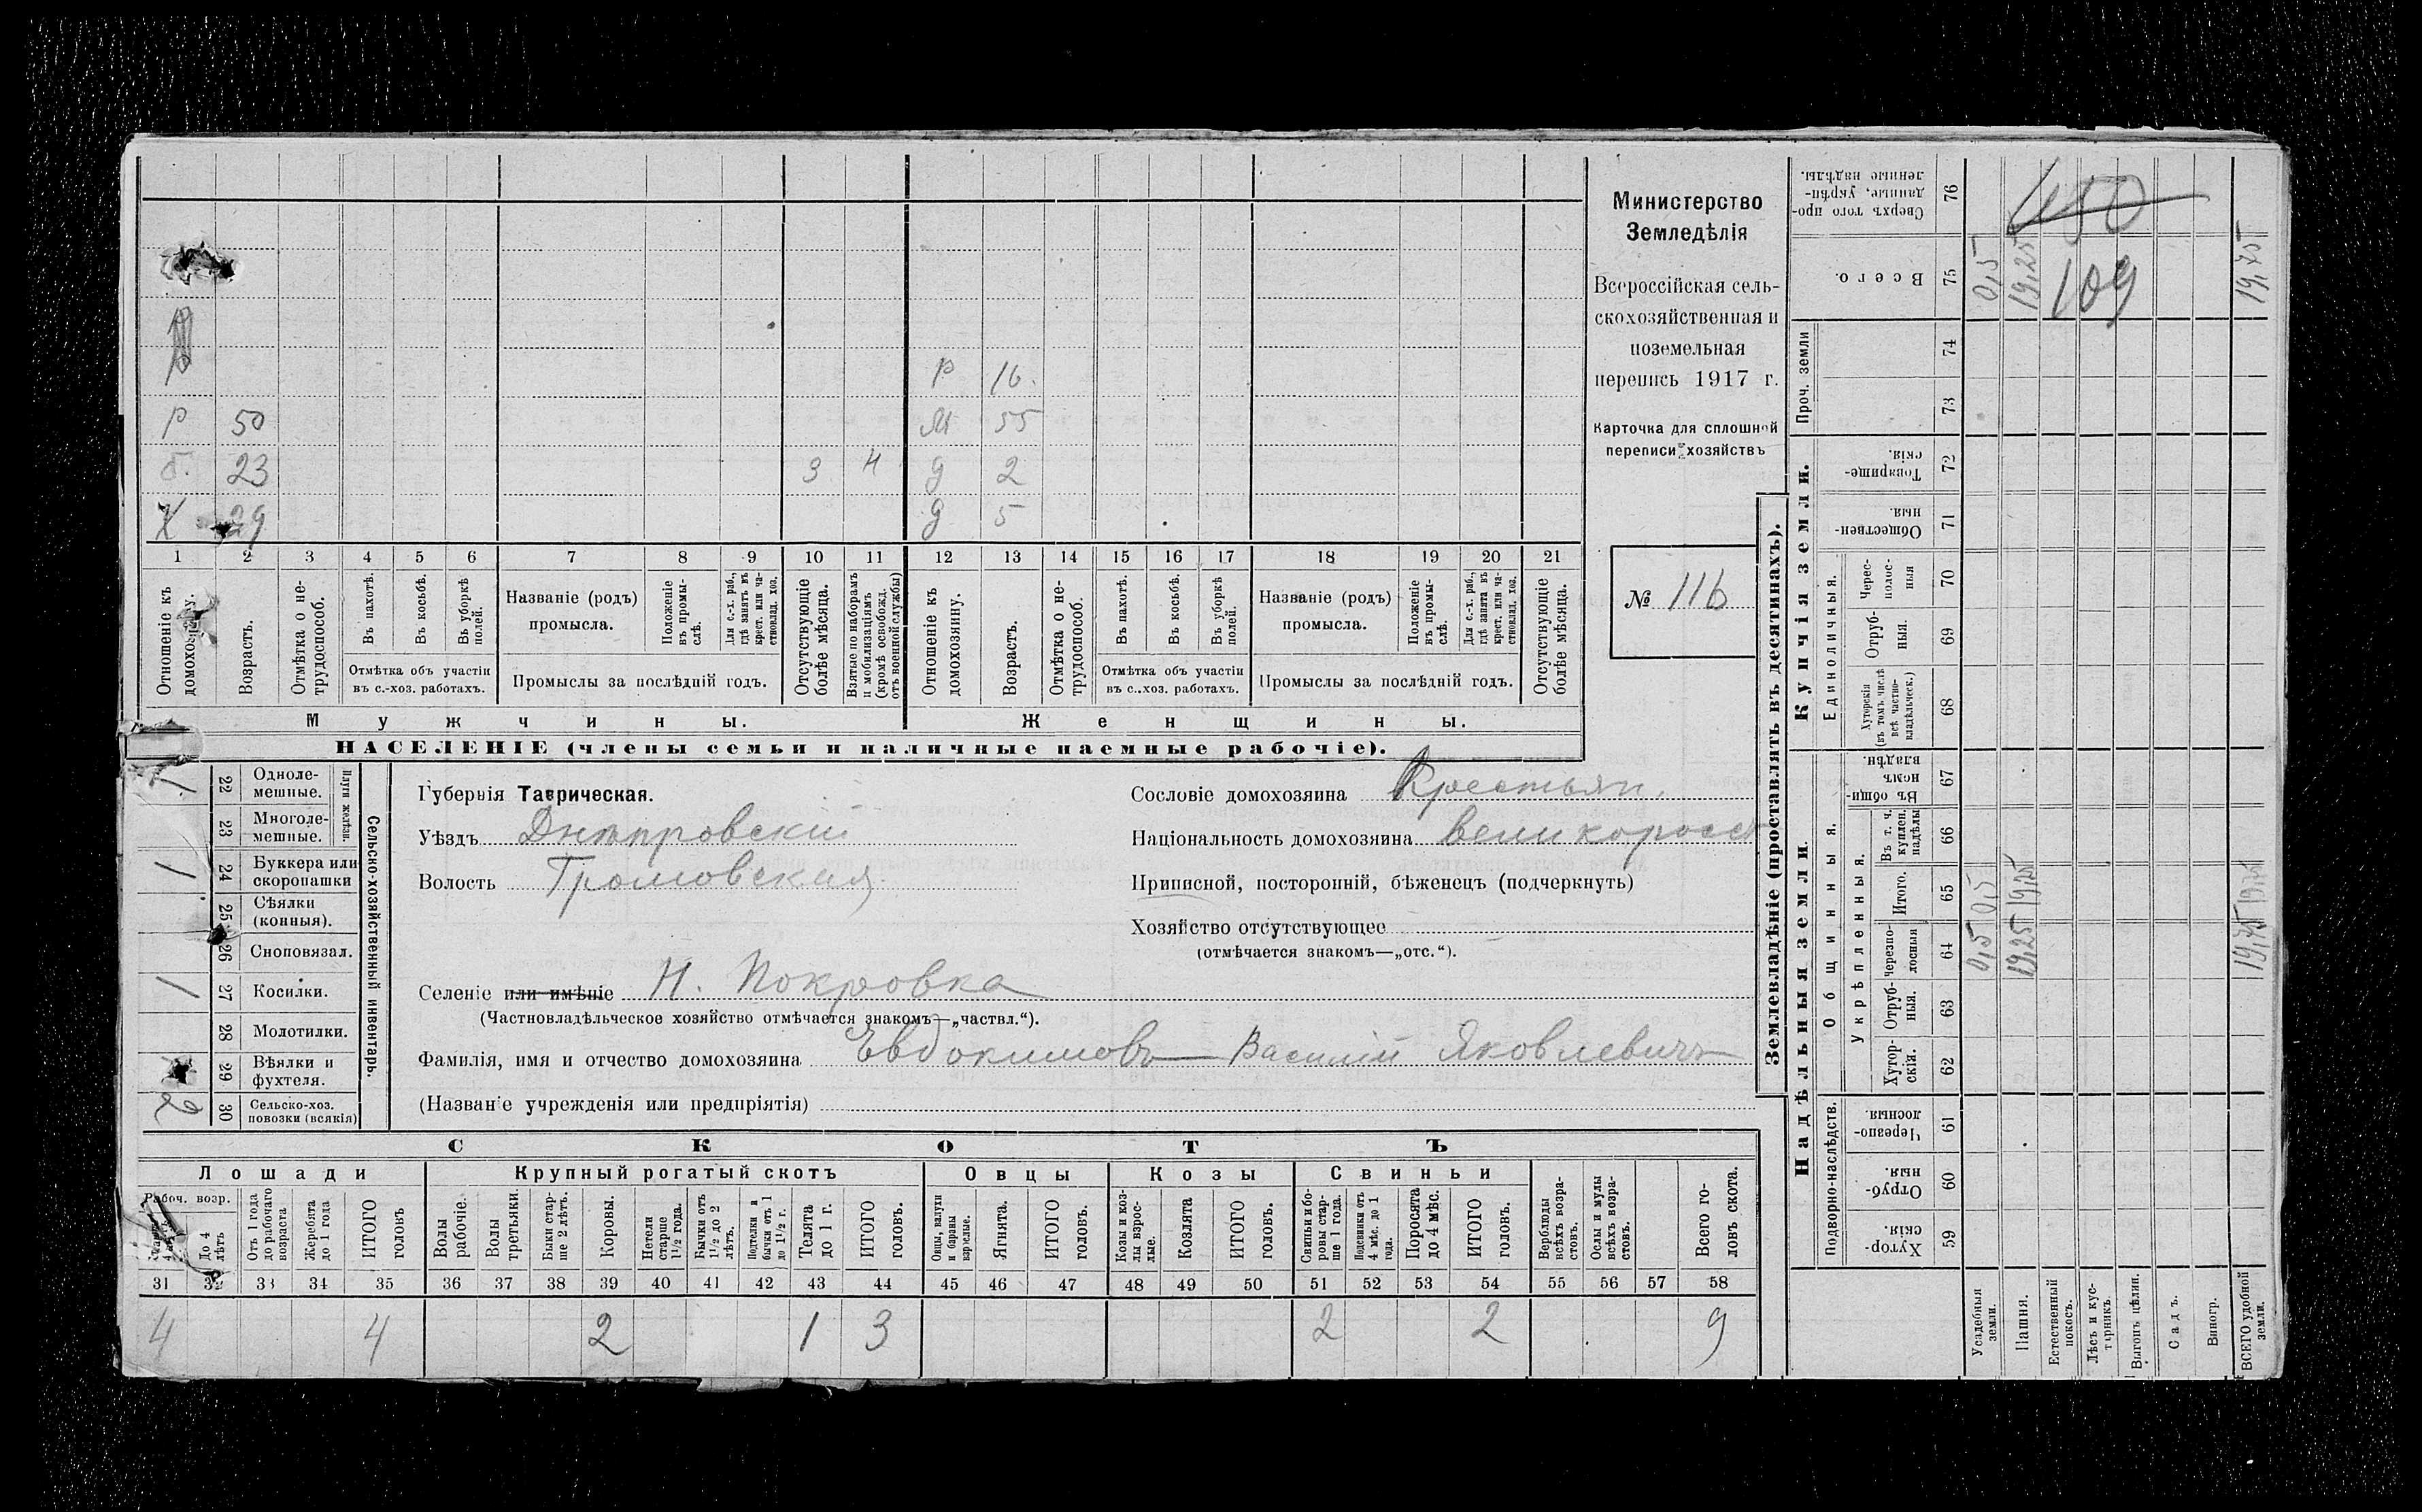 Министерство
Земледѣлія
Всероссійская сель-
скохозяйственная и
поземельная
перепись 1917 г.
Карточка для сплошной
переписи хозяйствъ
№ 116
Р 16.
Р 50 М 55
б. 23 З Н д 2
Х 29 д 5
1 2 3 4 5 6 7 8 9 10 11 12 13 14 15 16 17 18 19 20 21
Отношеніе къ домохозяину.
Возрастъ.
Отмѣтка о не-трудоспособ.
Въ пахотѣ.
Въ косьбѣ.
Въ уборкѣ полей.
Отмѣтка объ участіи
въ с.-хоз. работахъ.
Названіе (родъ)
промысла.
Положеніе въ промы-слѣ.
Для с.-х. раб., гдѣ занятъ въ крест. или ча-стновлад. хоз.
Промыслы за послѣдній годъ.
Отсутствующіе болѣе мѣсяца.
Взятые по наборамъ и мобилизаціямъ (кромѣ освобожд. отъ военной службы)
Отношеніе къ домохозяину.
Возрастъ.
Отмѣтка о не-трудоспособ.
Въ пахотѣ.
Въ косьбѣ.
Въ уборкѣ полей.
Отмѣтка объ участіи
въ с.-хоз. работахъ.
Названіе (родъ)
промысла.
Положеніе въ промы-слѣ.
Для с.-х. раб., гдѣ занята въ крест. или ча-стновлад. хоз.
Промыслы за послѣдній годъ.
Отсутствующіе болѣе мѣсяца.
Мужчины. Женщины.
НАСЕЛЕНІЕ (члены семьи и наличные наемные рабочіе).
Сельско-хозяйственный инвентарь.
Плуги желѣзн.
1 22 Одноле-мешные.
23 Многоле-мешные.
1 24 Буккера или скоропашки
25 Сѣялки (конныя).
26 Сноповязал.
1 27 Косилки.
28 Молотилки.
29 Вѣялки и фухтеля.
2 30 Сельско-хоз. повозки (всякія)
Губернія Таврическая.
Уѣздъ Днѣпровскій
Волость Громовская
Селеніе или имѣніе Н. Покровка
(Частновладѣльческое хозяйство отмѣчается знакомъ—„частвл.“).
Фамилія, имя и отчество домохозяина Евдокимовъ Василій Яковлевичъ
(Названіе учрежденія или предпріятія)
Сословіе домохозяина Крестьян.
Національность домохозяина великоросс
Приписной, посторонній, бѣженецъ (подчеркнуть)
Хозяйство отсутствующее
(отмѣчается знакомъ—„отс.“).
СКОТЪ
Лошади Крупный рогатый скотъ Овцы Козы Свиньи
Рабоч. возр.
До 4 лѣтъ
Отъ 1 года до рабочаго возраста
Жеребята до 1 года
ИТОГО головъ
Волы рабочіе.
Волы третьяки.
Быки стар-ше 2 лѣтъ.
Коровы.
Нетели старше 1½ года.
Бычки отъ 1½ до 2 лѣтъ.
Подтелки и бычки отъ 1 до 1½ г.
Телята до 1 г.
ИТОГО головъ.
Овцы, валухи и бараны взрослые.
Ягнята.
ИТОГО головъ.
Козы и коз-лы взрос-лые.
Козлята
ИТОГО головъ.
Свиньи и бо-ровы стар-ше 1 года.
Подсвинки отъ 4 мѣс. до 1 года.
Поросята до 4 мѣс.
ИТОГО головъ.
Верблюды всѣхъ возра-стовъ.
Ослы и мулы всѣхъ возра-стовъ.
Всего го-ловъ скота.
31 32 33 34 35 36 37 38 39 40 41 42 43 44 45 46 47 48 49 50 51 52 53 54 55 56 57 58
4 4 2 1 3 2 2 9
Землевладѣніе (проставлять въ десятинахъ).
Купчія земли.
Надѣльныя земли.
Сверхъ того про-данные, укрѣп-ленные надѣлы. 76
Всего. 75
Проч. земли 74 73
Товарище-скія. 72
Обществен-ныя. 71
Единоличныя.
Черес-полос-ныя 70
Отруб-ныя. 69
Хуторскія (въ томъ числѣ всѣ частно-владѣльческ.) 68
Общинныя.
Въ общин-номъ владѣн. 67
Укрѣпленныя.
Въ т. ч. куплен. надѣлы 66
Итого. 65
черезпо-лосныя 64
Отруб-ныя. 63
Хутор-скія. 62
Подворно-наслѣдств.
Черезпо-лосныя. 61
Отруб-ныя. 60
Хутор-скія. 59
Усадебныя земли. 0,5 0,5 0,5
Пашня. 19,25 19,25 19,25
Естественный покосъ.
Лѣсъ и кус-тарникъ.
Выгонъ цѣлин.
Садъ.
Виногр.
ВСЕГО удобной земли. 19,75 19,75 19,75
450
109